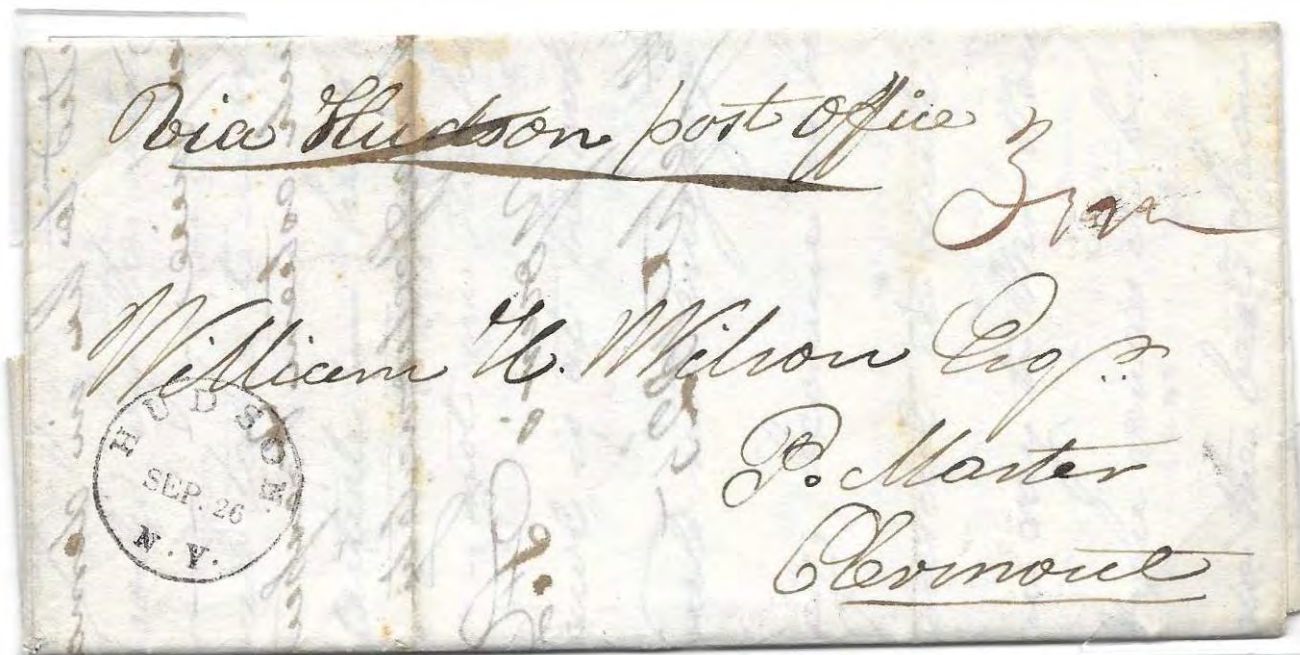 Via Hudson post office
William H. Wilson Esqr.
P. Master
Clermont
HUDSON
SEP. 26
N.Y.